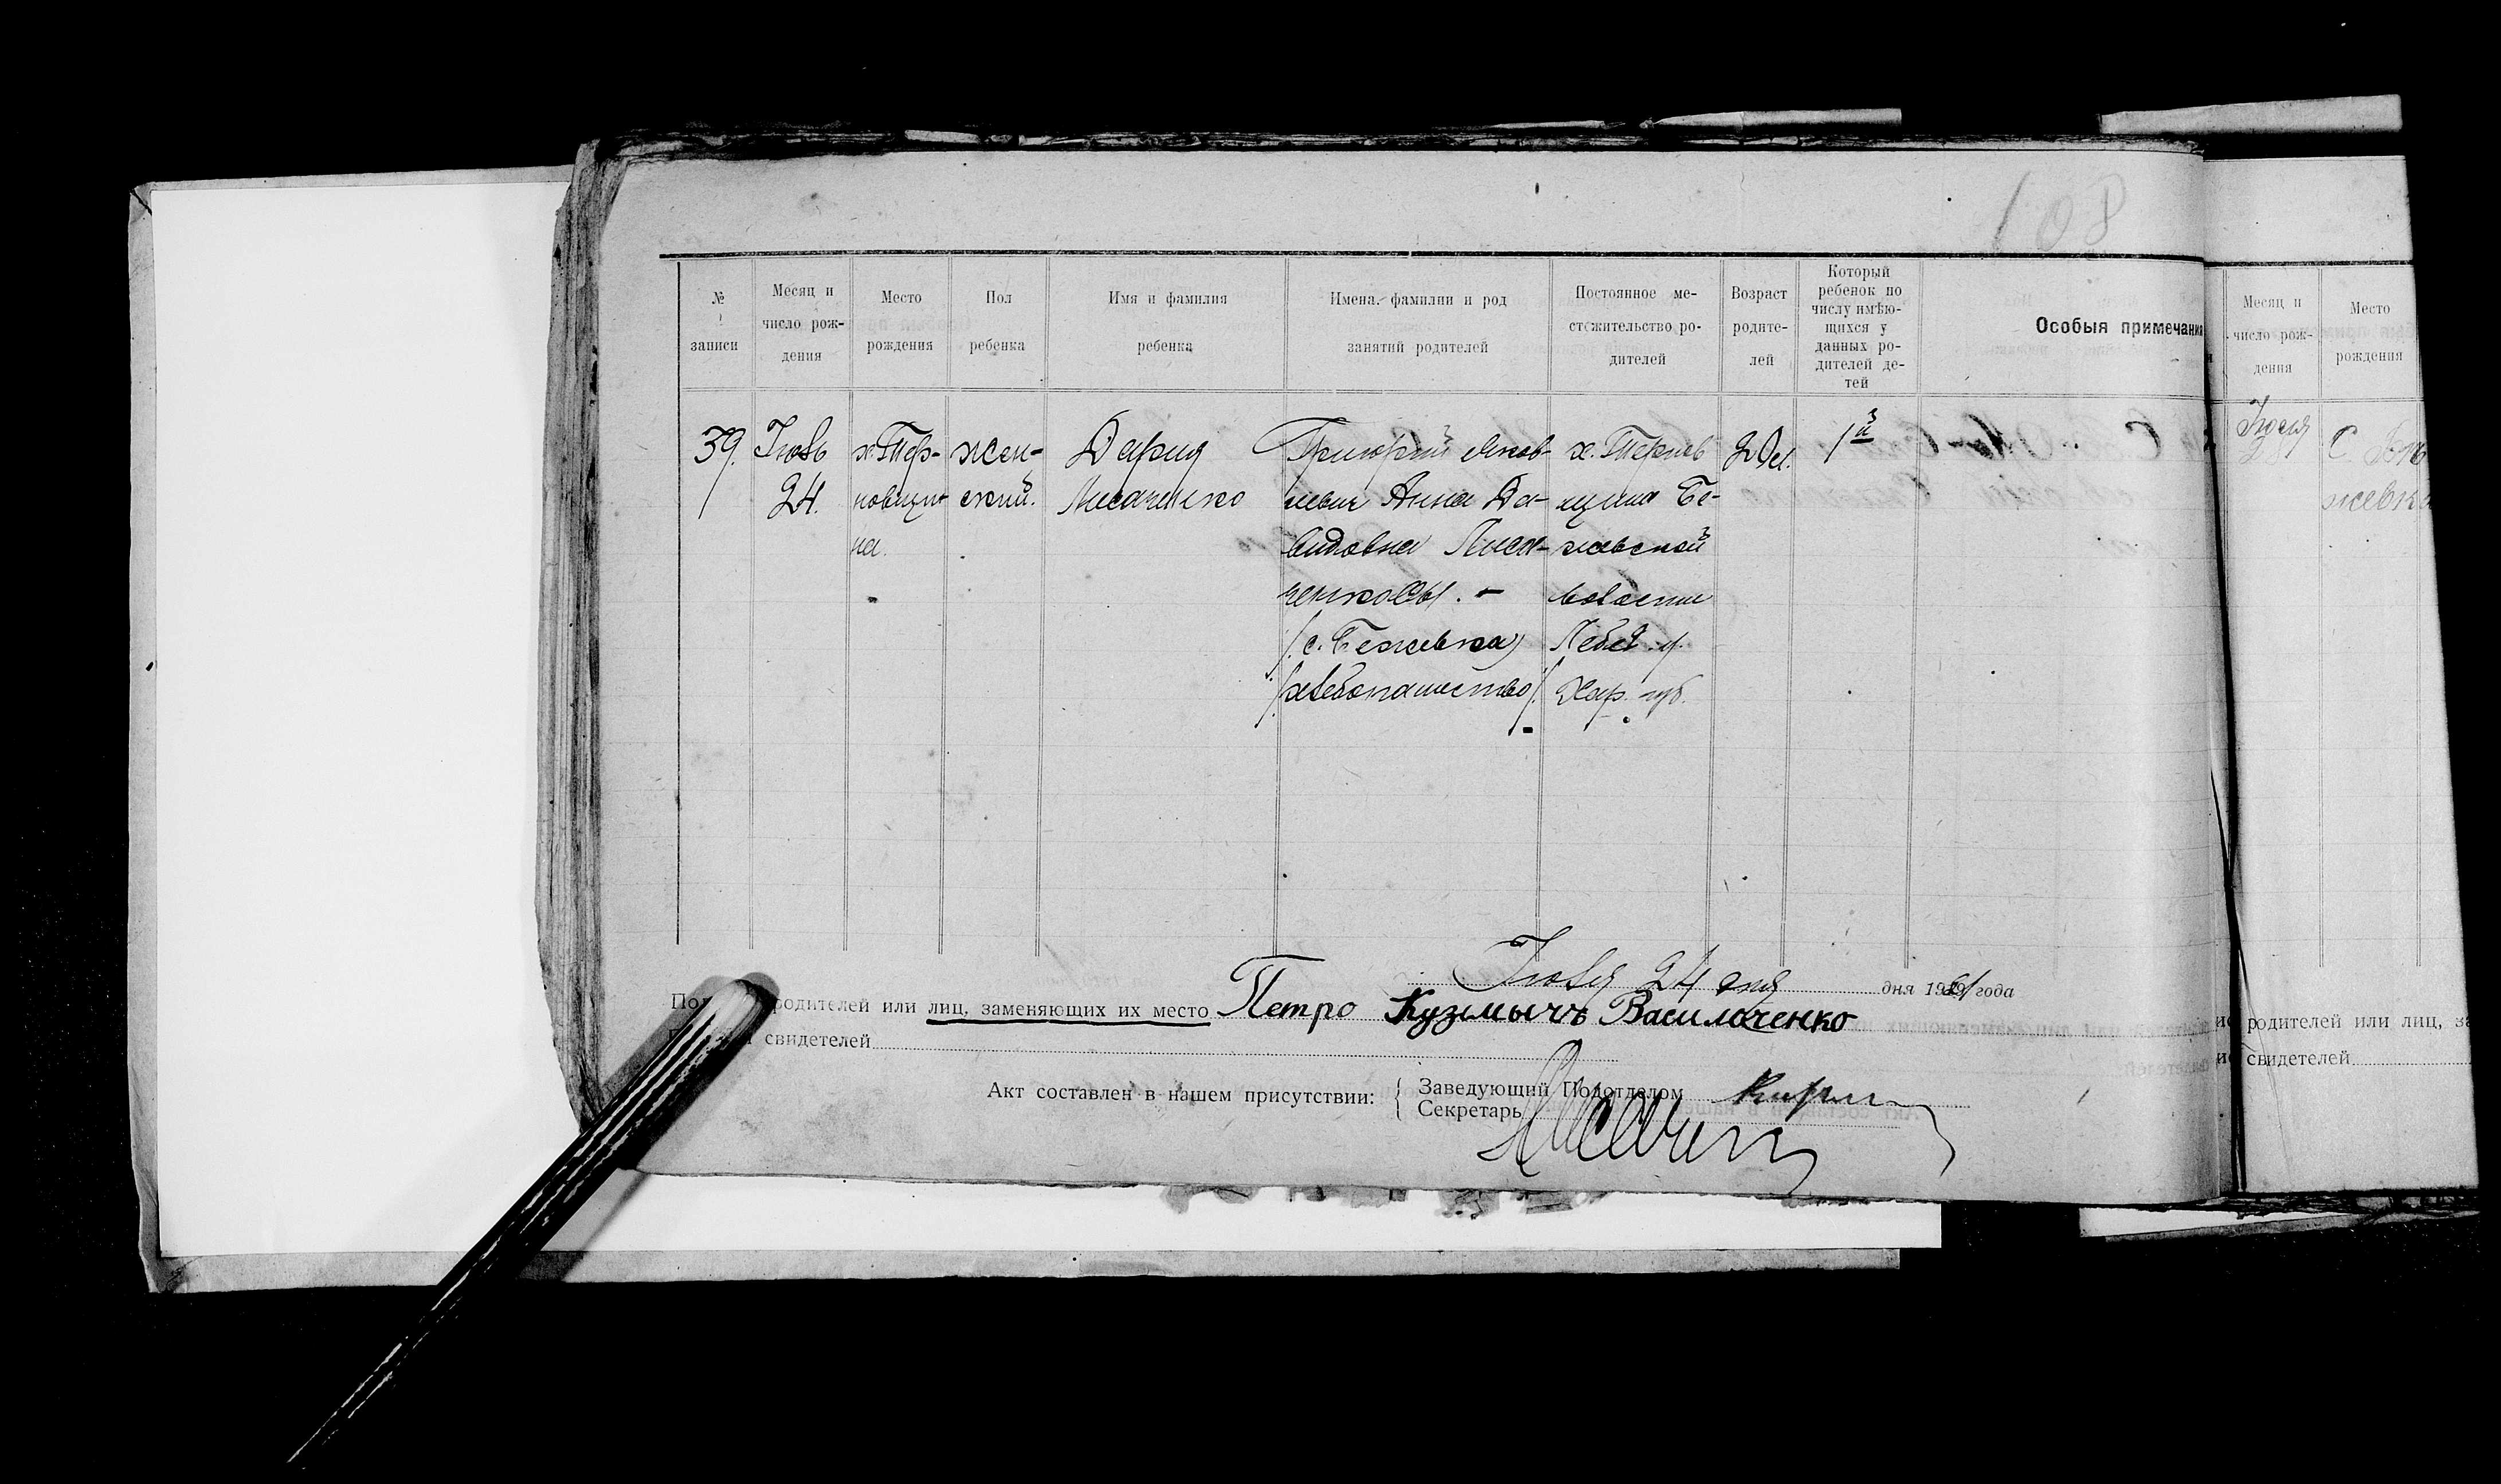 108
№ записи
Месяц и число рождения
Место рождения
Пол ребенка
Имя и фамилия ребенка
Имена, фамилии и род занятий родителей
Постоянное местожительство родителей
Возраст родителей
Который ребенок по числу имѣющихся у данных родителей детей
Особыя примечания
39.
Июль
24.
х. Тер-
новщи-
на.
жен-
ский.
Дария
Лисаченко
Григорий Яков-
левич Анна Да-
видовна Лиса-
ченковы. -
(с. Бежевка)
(хлебопашество)
х. Тернов-
щина Бе-
жевской
волости
Лебед. у.
Хар. губ.
20 л.
1й
Июля 24 дня
дня 1921 года
родителей или лиц, заменяющих их место Петро Кузмычъ Василоченко
свидетелей
Акт составлен в нашем присутствии:
Заведующий Подотделом
Секретарь
Месяц и
число рож-
дения
Место
рождения
Июля
С.
жевка
родителей или лиц,
свидетелей